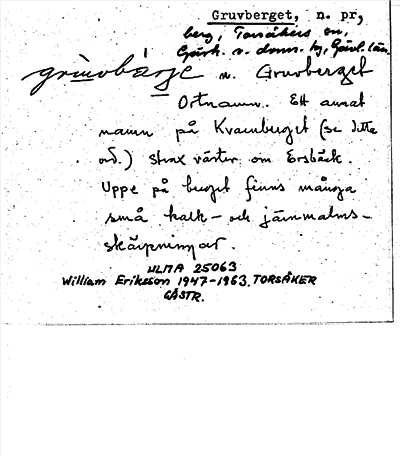 Gruvberget, n. pr,
berg, Torsåkers sn,
Gästr. v. doms. hg, Gävl. län
gruvbärje n. Gruvberget
Ortnamn. Ett annat
namn på Kvarnberget (se detta
ord.) strax väster om Ersbäck.
Uppe på berget finns många
små kalk- och järnmalms-
skärpningar.
ULMA 25063
William Eriksson 1947-1963. TORSÅKER
GÄSTR.